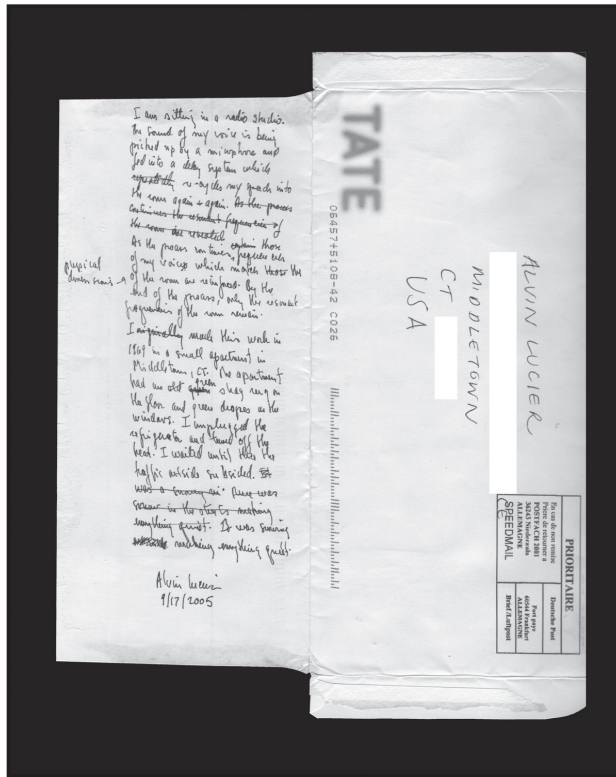 I am sitting in a radio studio.
The sound of my voice is being
picked up by a microphone and
fed into a delay system which
repeatedly re-cycles my speech into
the room again + again. As the process
continues the resonant frequencies of
the room are revealed
As the process continues, those frequencies
of my voice which match those the
physical
dimensions → of the room are reinforced. By the
end of the process, only the resonant
frequencies of the room remain.
I originally made this work in
1969 in a small apartment in
Middletown, CT. The apartment
had an old green shag rug on
the floor and green drapes on the
windows. I unplugged the
refrigerator and turned off the
heat. I waited until the
traffic outside subsided. It
was a snowy There was
snow in the streets making
everything quiet. It was snowing
making everything quiet.
Alvin Lucier
9/17/2005
TATE
0645745108-42 C026
ALVIN LUCIER
MIDDLETOWN
CT
USA
PRIORITAIRE
En cas de non remise
Prière de retourner à
POSTFACH 2001
36243 Niederaula
ALLEMAGNE
SPEEDMAIL
Deutsche Post
Port payé
60544 Frankfurt
ALLEMAGNE
Brief/Luftpost